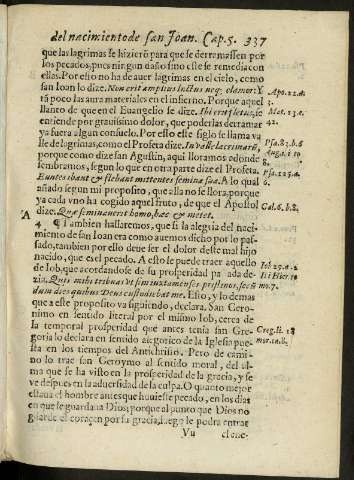 del nacimiento de san Joan. Cap. 5. 337
que las lagrimas se hizierõ para que se derramassen por
los pecados, pues ningun daño sino esse se remedia con
ellas. Por esto no ha de auer lagrimas en el cielo, como
san Ioan lo dize. Non erit amplius luctus neq; clamor: Y
rã poco las aura materiales en el infierno. Porque aquel
llanto de que en el Euangelio se dize. Ibi erit fletus, se
entiende por grauissimo dolor, que poderlas derramar
ya fuera algun consuelo. Por esto este siglo se llama va
lle de lagrimas, como el Profeta dize. In valle lacrimarũ,
porque como dize san Agustin, aqui lloramos adonde
sembramos, segun lo que en otra parte dize el Profeta.
Euntes ibant & flebant mittentes semina sua. A lo qual
añado segun mi proposito, que alla no se llora, porque
ya cada vno ha cogido aquel fruto, de que el Apostol
dize. Quæ seminauerit homo, hæc & metet.
4 ¶ Tambien hallaremos, que si la alegria del naci
miento de san Ioan era como auemos dicho por lo pas-
sado, tambien por ello deue ser el dolor deste mal hijo
nacido, que es el pecado. A esto se puede traer aquello
de Iob, que acordandose de su prosperidad passada de-
zia. Quis mihi tribuat vt sim iuxta menses pristinos, secũ
dum dies quibus Deus custodiebat me. Esto, y lo demas
que a este proposito va siguiendo, declara San Gero-
nimo en sentido literal por el mismo Iob, cerca de
la temporal prosperidad que antes tenia san Gre-
gorio lo declara en sentido alegorico de la Iglesia pue-
sta en los tiempos del Antichristo. Pero de cami-
no lo trae san Geroymo al sentido moral, del al-
ma que se ha visto en la prosperidad de la gracia, y se
ve despues en la aduersidad de la culpa. O quanto mejor
estaua el hombre antes que huuiesse pecado, en los dias
en que le guardaua Dios; porque al punto que Dios no
guarde el coraçon por su gracia, luego le podra entrar
Vu el ene-
Apo. 22. a.
3.
Mat. 23. a.
42.
Psa. 83. b. 6
Psa. 125. a.
6.
Gal. 6. b. 8.
A
Iob 29. a. 2
Greg. li. 18